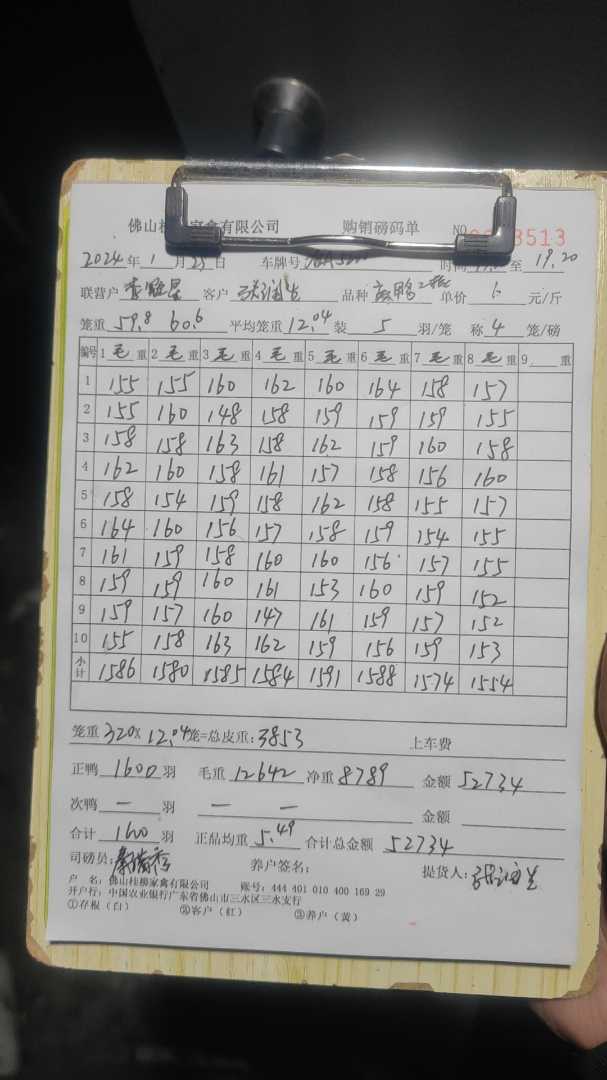 佛山桂柳家禽有限公司 购销磅码单 NO 3513
2024年1月25日 车牌号 时间 至 19.20
联营户 客户 品种 鸭 单价 6 元/斤
笼重 59.8 60.6 平均笼重 12.04 装 5 羽/笼 称 4 笼/磅
编号 1 毛 重 2 毛 重 3 毛 重 4 毛 重 5 毛 重 6 毛 重 7 毛 重 8 毛 重 9 重
1 155 155 160 162 160 164 158 157
2 155 160 148 158 159 159 159 155
3 158 158 163 158 162 159 160 158
4 162 160 158 161 157 158 156 160
5 158 154 159 158 162 158 155 157
6 164 160 156 157 158 159 154 155
7 161 159 158 160 160 156 157 155
8 159 159 160 161 153 160 159 152
9 159 157 160 147 161 159 157 152
10 155 158 163 162 159 156 159 153
小计 1586 1580 1585 1584 1591 1588 1574 1554
笼重 320 X 12.04 笼=总皮重: 3853 上车费
正鸭 1600 羽 毛重 12642 净重 8789 金额 52734
次鸭 — 羽 — — 金额
合计 160 羽 正品均重 5.49 合计总金额 52734
司磅员: 养户签名: 提货人:
户 名: 佛山桂柳家禽有限公司 账号: 444 401 010 400 169 29
开户行: 中国农业银行广东省佛山市三水区三水支行
①存根(白) ②客户(红) ③养户(黄)